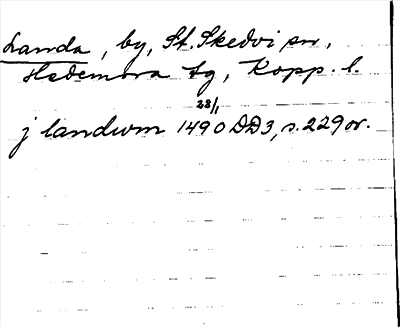 Landa, by, St. Skedvi sn,
Hedemora tg, Kopp. l.
23/1
j landwm 1490 DD3, s. 229 or.